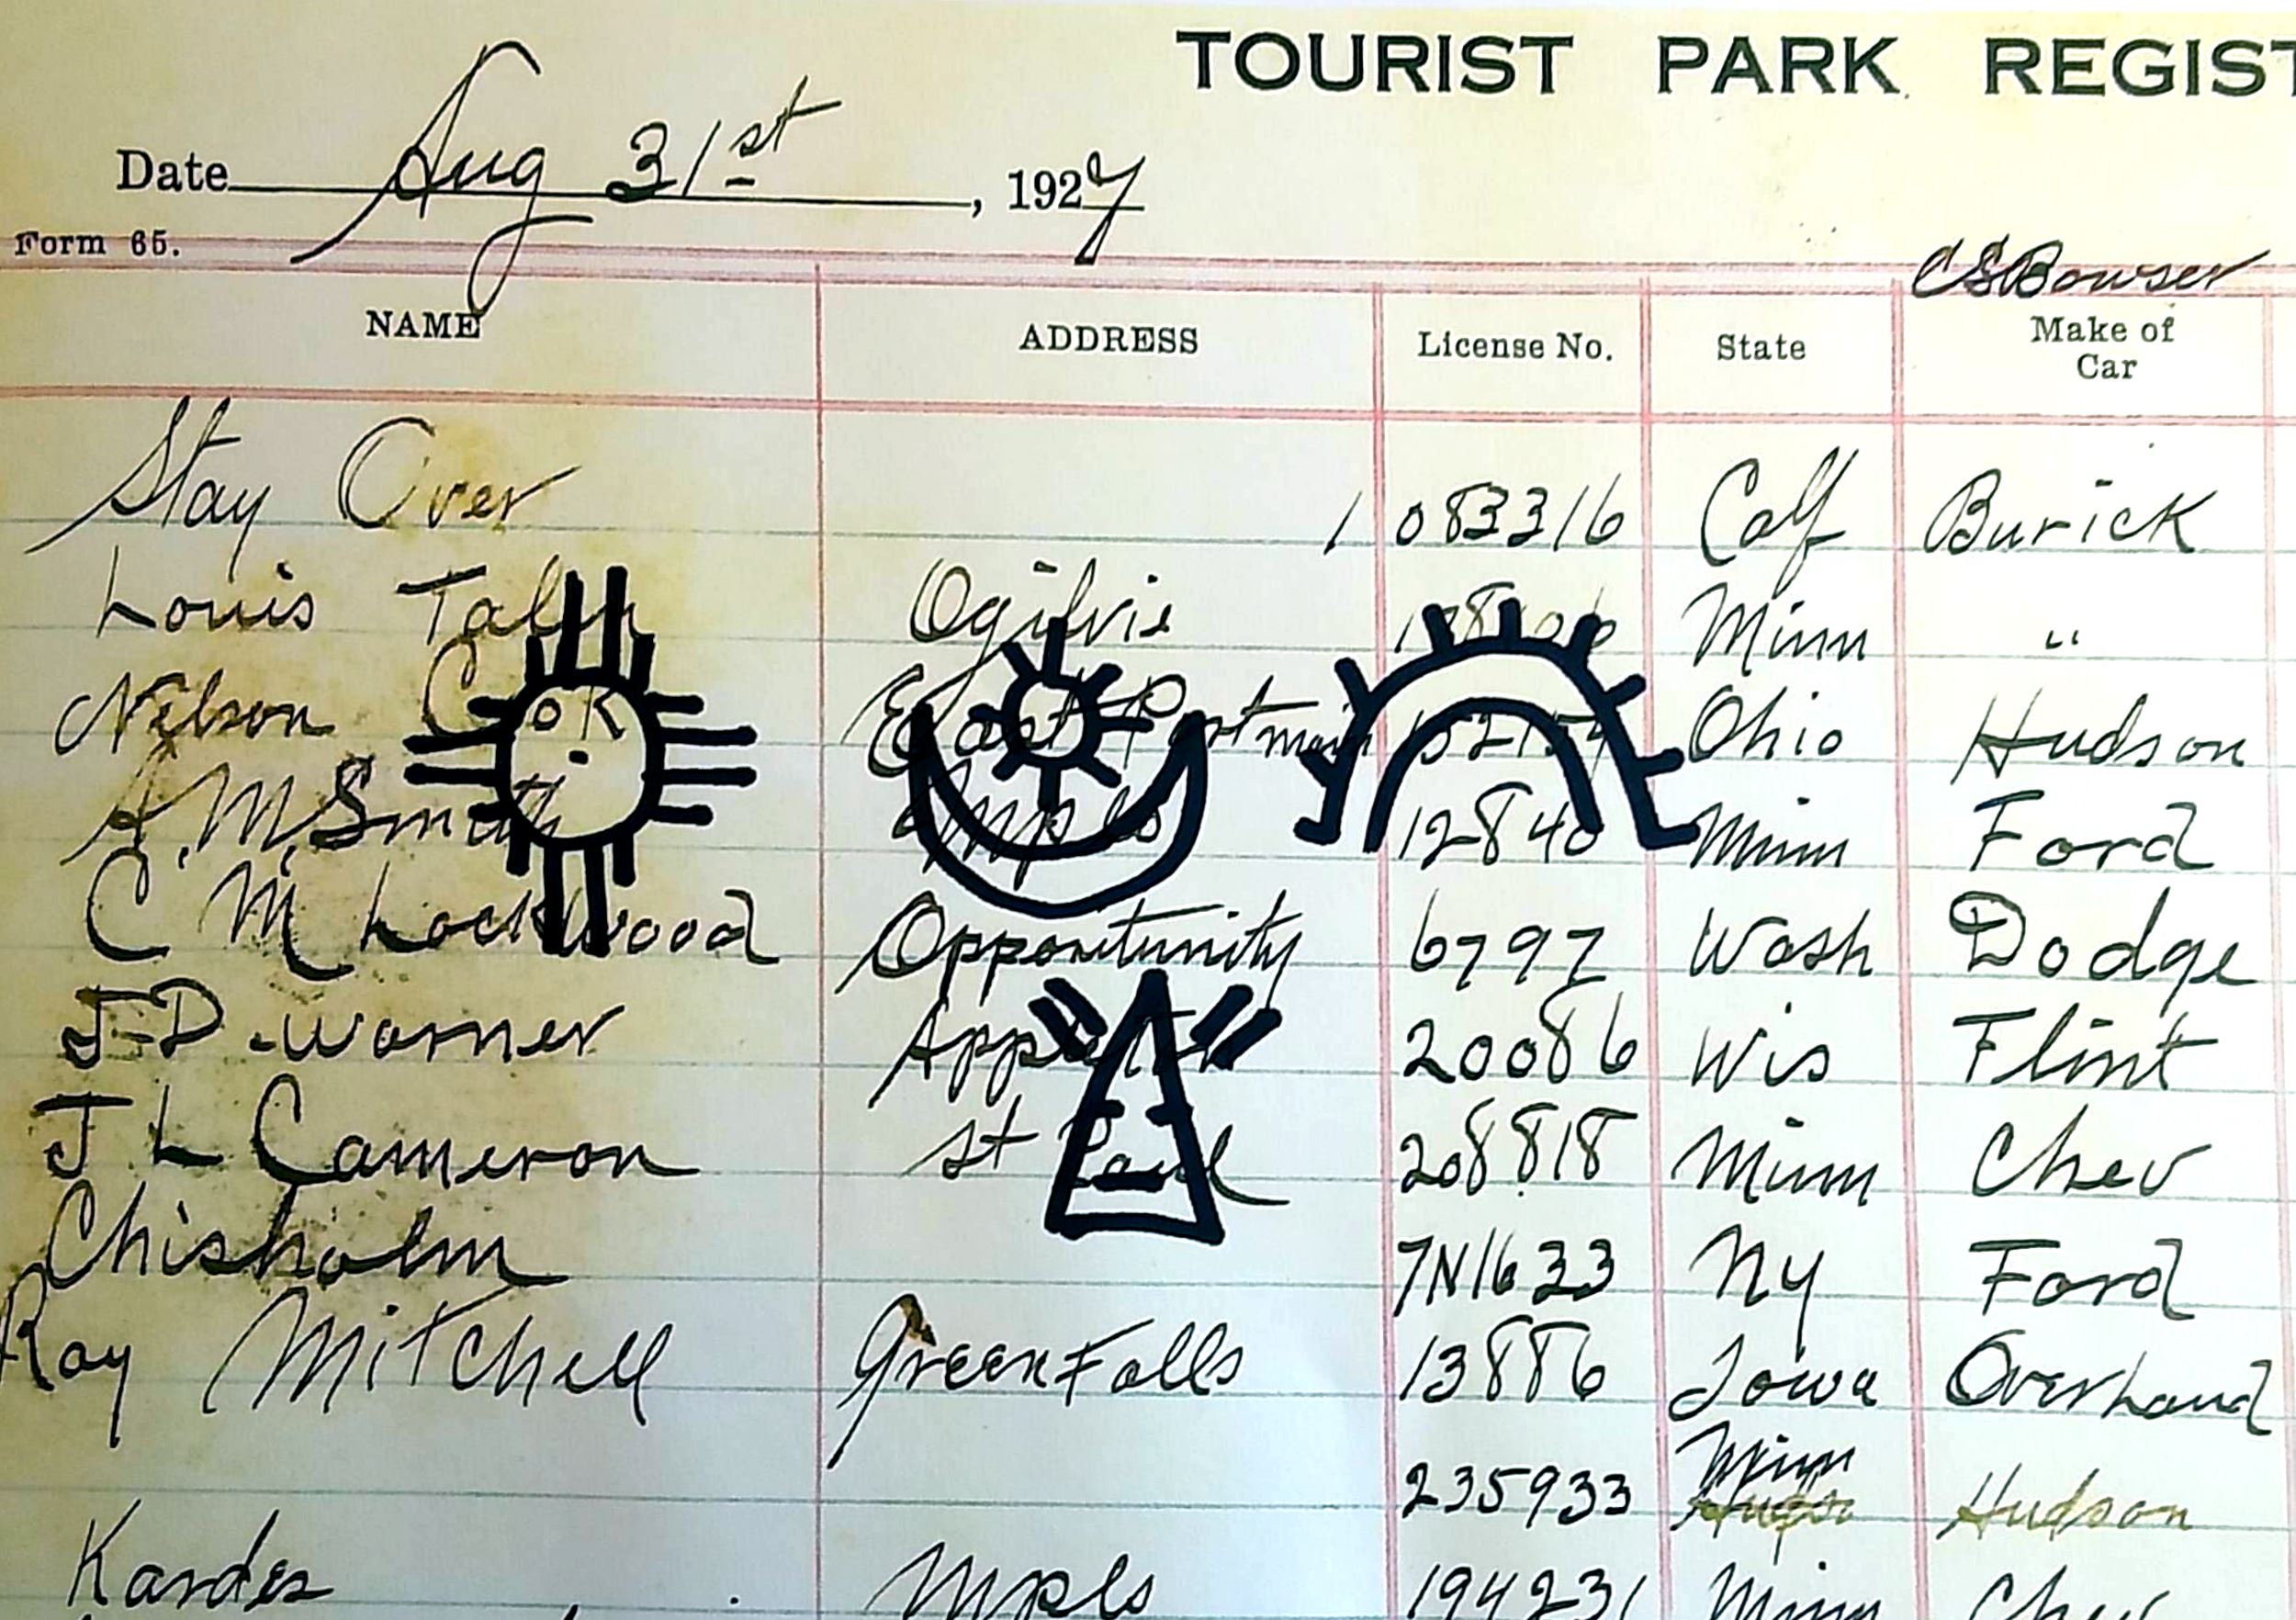 TOURIST PARK REGIST
Date Aug 31st, 1927
Form 65.
C S Bowser
NAME ADDRESS License No. State Make of Car
Stay Over 1083316 Calf Burick
Louis Ogilvie Minn "
Nelson Ohio Hudson
A.M. Smith Mpls 12840 Minn Ford
C M Lockwood Opportunity 6797 Wash Dodge
J-D-Warner 20086 Wis Flint
J L Cameron St Paul 208818 Minn Chev
Chisholm 7N1633 NY Ford
Ray Mitchell Green Falls 13886 Iowa Overland
235933 Minn Hudson
Kardes Mpls 194231 Minn Chev